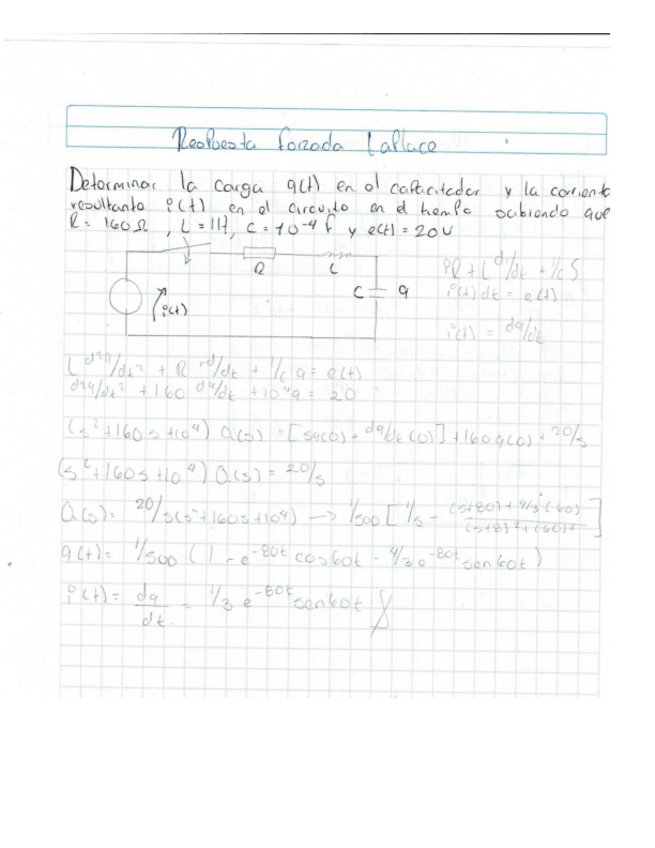 Respuesta forzada Laplace
Determinar la carga q(t) en el capacitador y la corriente
resultante i(t) en el circuito en el tiempo sabiendo que
R = 160 Ω, L = 1H, C = 10⁻⁴ f y e(t) = 20V
R
L
C
q
i(t)
iR + L di/dt + 1/c S
i(t) dt = e(t)
i(t) = dq/dt
L d²q/dt² + R d/dt + 1/c q = e(t)
d²q/dt² + 160 dq/dt + 10⁴q = 20
(s² + 160s + 10⁴) Q(s) = [sq(0) + dq/dt (0)] + 160q(0) + 20/s
(s² + 160s + 10⁴) Q(s) = 20/s
Q(s) = 20/s(s² + 160s + 10⁴) → 1/500 [ 1/s - (s+80) + 4/3 (60) / (s+8)² + (60)² ]
q(t) = 1/500 ( 1 - e⁻⁸⁰ᵗ cos60t - 4/3 e⁻⁸⁰ᵗ sen60t )
i(t) = dq/dt = 1/3 e⁻⁸⁰ᵗ sen60t